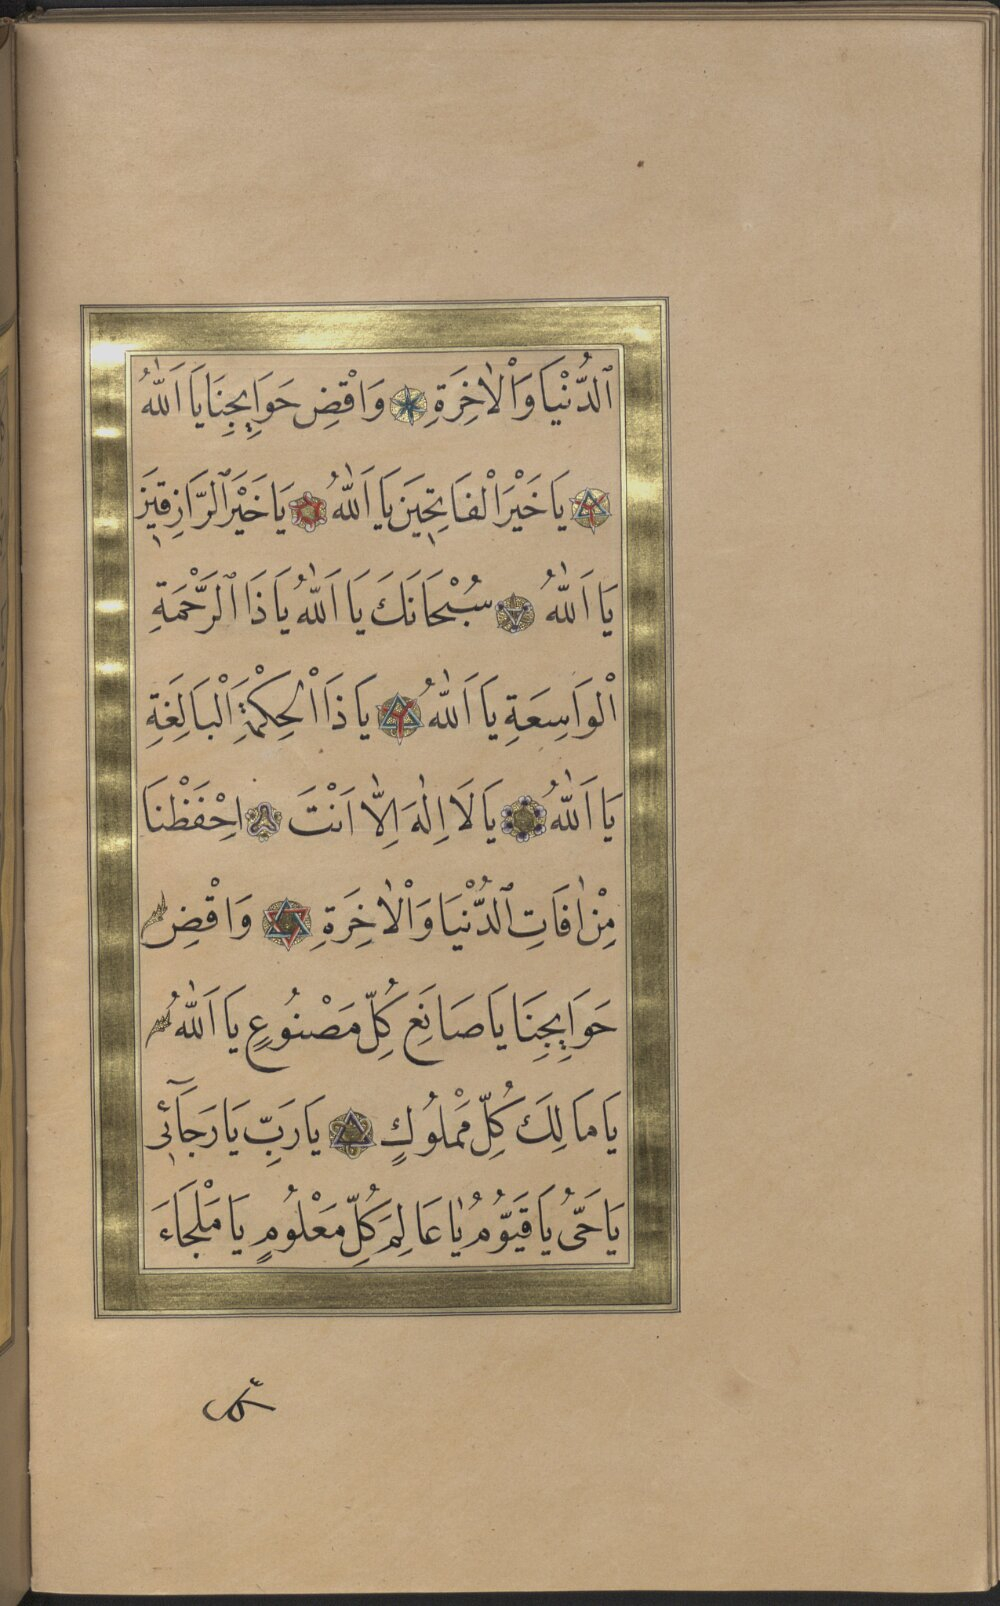 اَلدُّنْيَا وَالْاٰخِرَةِ وَاقْضِ حَوَايِجِنَا يَا اَللّٰهُ
يَا خَيْرَ الْفَاتِحِيَن يَا اَللّٰهُ يَا خَيْرَ الرَّازِقِيَن
يَا اَللّٰهُ سُبْحَانَكَ يَا اَللّٰهُ يَا ذَا الرَّحْمَةِ
الْوَاسِعَةِ يَا اَللّٰهُ يَا ذَا الْحِكْمَةِ الْبَالِغَةِ
يَا اَللّٰهُ يَا لَا اِلٰهَ اِلَّا اَنْتَ اِحْفَظْنَا
مِنْ اٰفَاتِ الدُّنْيَا وَالْاٰخِرَةِ وَاقْضِ
حَوَايِجِنَا يَا صَانِعَ كُلِّ مَصْنُوعٍ يَا اَللّٰهُ
يَا مَالِكَ كُلِّ مَمْلُوكٍ يَا رَبِّ يَا رَجَآئِى
يَا حَىُّ يَا قَيُّومُ يَا عَالِمَ كُلِّ مَعْلُومٍ يَا مَلْجَاءَ